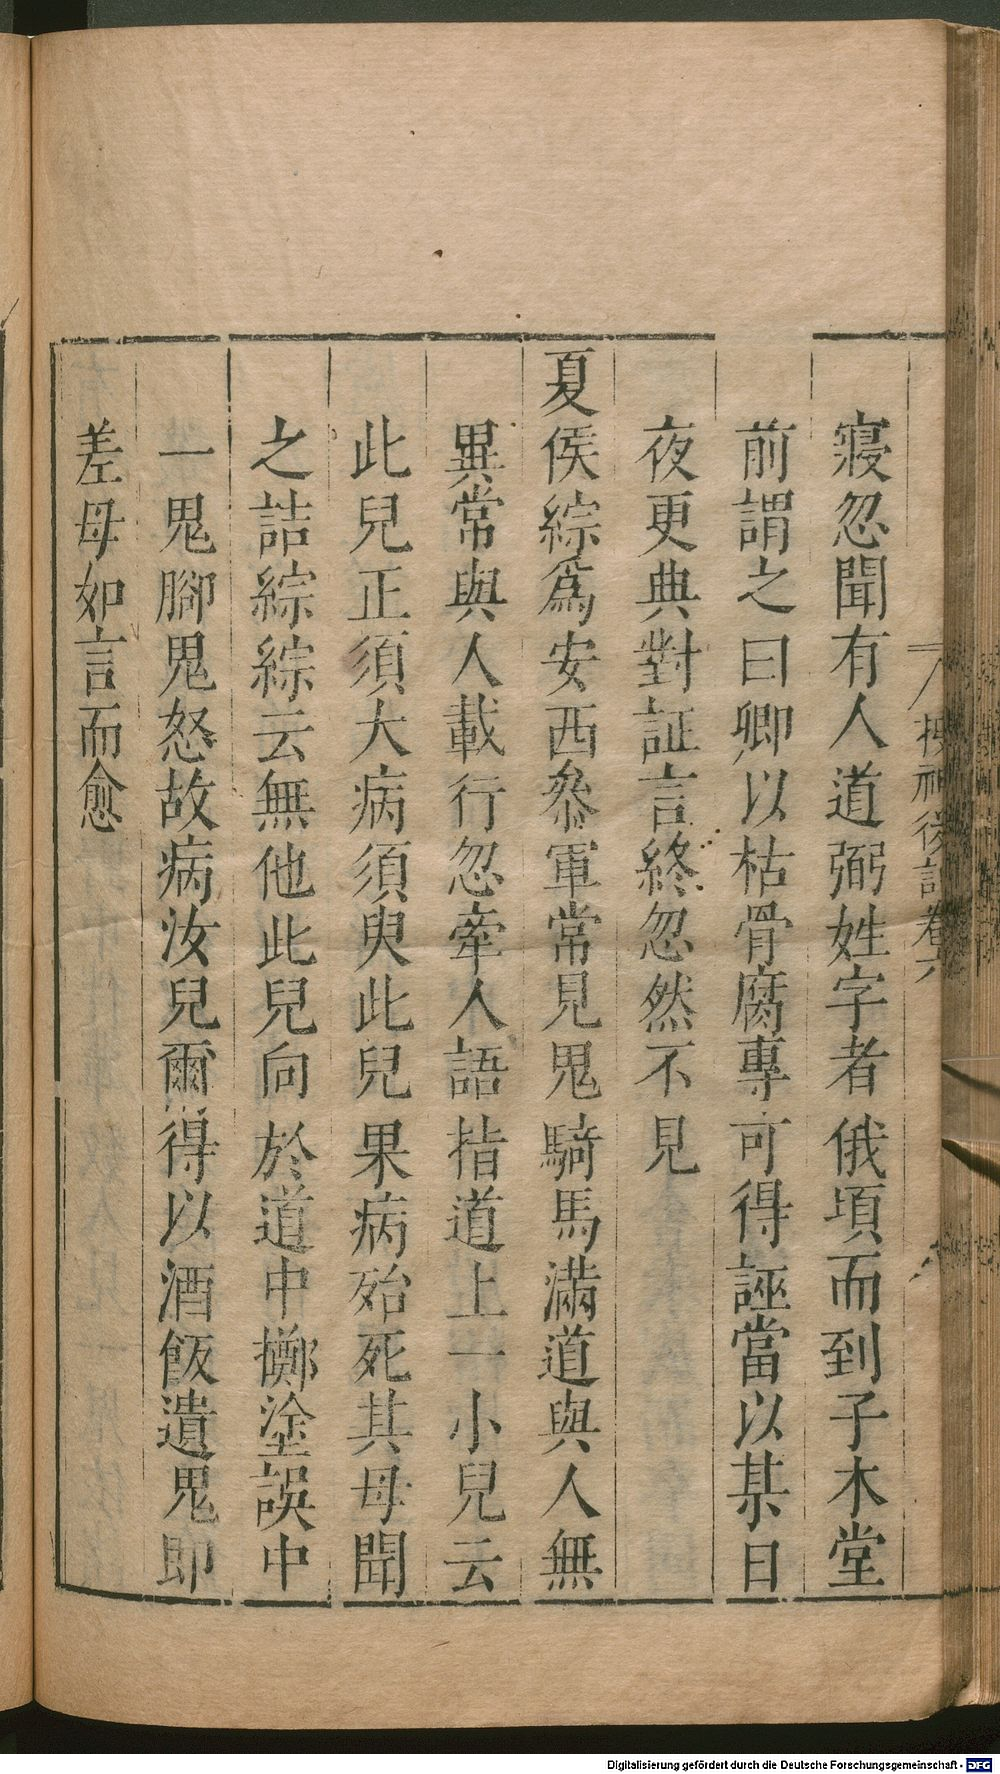 搜神後記卷六
寢忽聞有人道弼姓字者俄頃而到子木堂
前謂之曰卿以枯骨腐專可得誣當以某日
夜更典對証言終忽然不見
夏侯綜爲安西叅軍常見鬼騎馬滿道與人無
異常與人載行忽牽人語指道上一小兒云
此兒正須大病須臾此兒果病殆死其母聞
之詰綜綜云無他此兒向於道中擲塗誤中
一鬼腳鬼怒故病汝兒爾得以酒飯遺鬼即
差母如言而愈
Digitalisierung gefördert durch die Deutsche Forschungsgemeinschaft - DFG